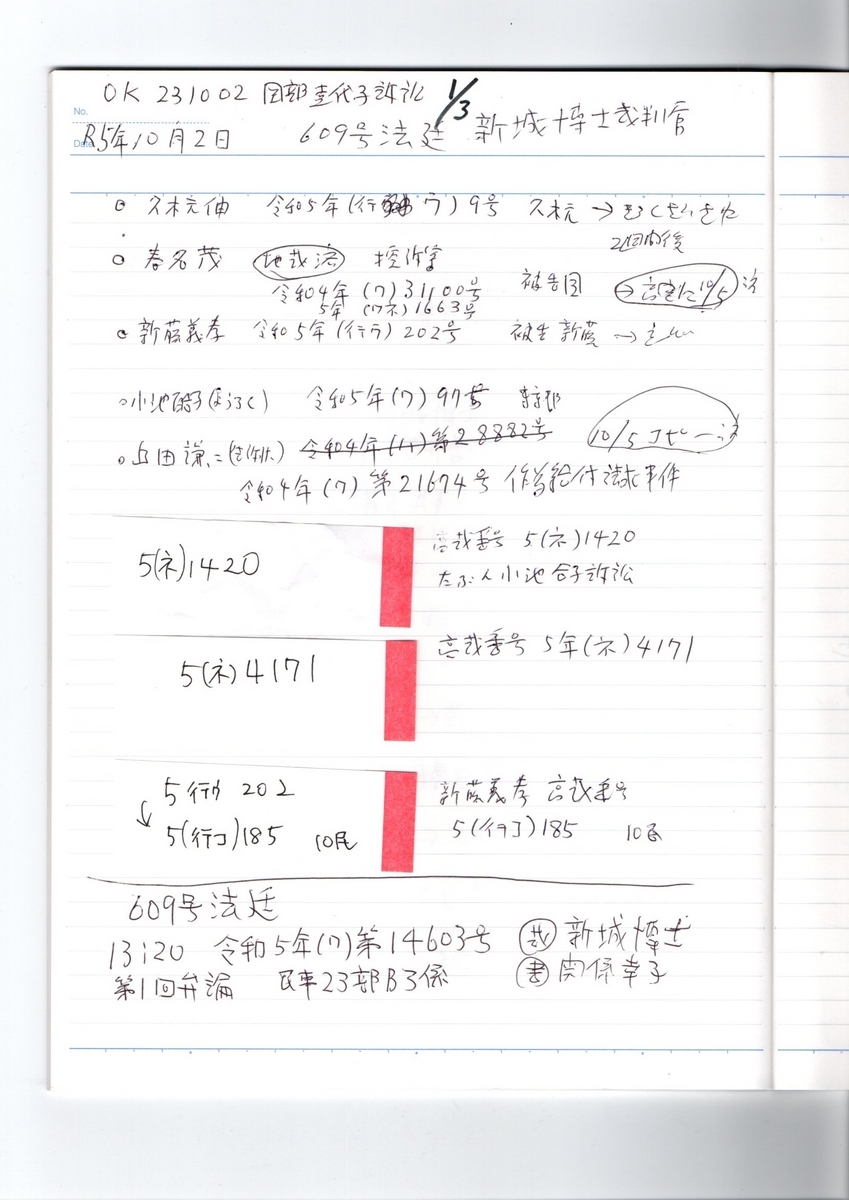 OK 231002 岡部喜代子訴訟 1/3
No.
Date R5年10月2日 609号法廷 新城博士裁判官
久木元伸 令和5年(行ウ)9号 久木元→
2週間後
春名茂 地裁済 控訴審 被告国
令和4年(ワ)31100号 →高裁に10/5 済
5年(ワネ)1663号
新藤義孝 令和5年(行ウ)202号 被告新藤→
小池百合子 令和5年(ワ)97号 東京都
令和4年 第28882号 10/5コピー済
令和4年(ワ)第21674号 作為給付請求事件
5(ネ)1420 高裁番号 5(ネ)1420
小池百合子訴訟
5(ネ)4171 高裁番号 5年(ネ)4171
5行ウ 202 新藤義孝 高裁番号
5(行コ)185 10民 5(行コ)185 10民
609号法廷
13:20 令和5年(ワ)第14603号 裁 新城博士
第1回弁論 民事23部B3係 書 関係幸子